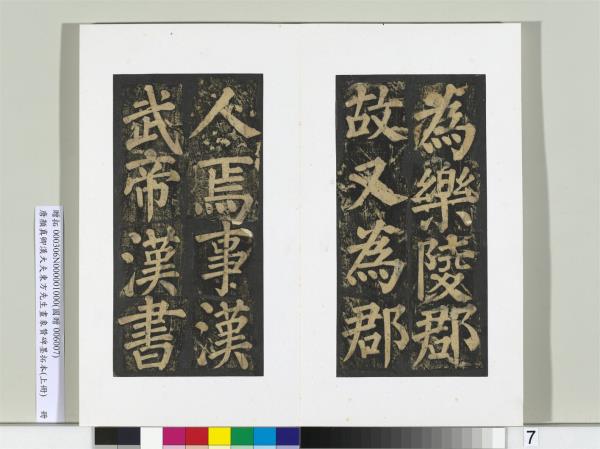 為樂陵郡
故又為郡
人焉事漢
武帝漢書
贈拓 000306N000001000(國贈 006007)
唐顏真卿漢大夫東方先生畫象贊碑墨拓本(上冊) 冊
7